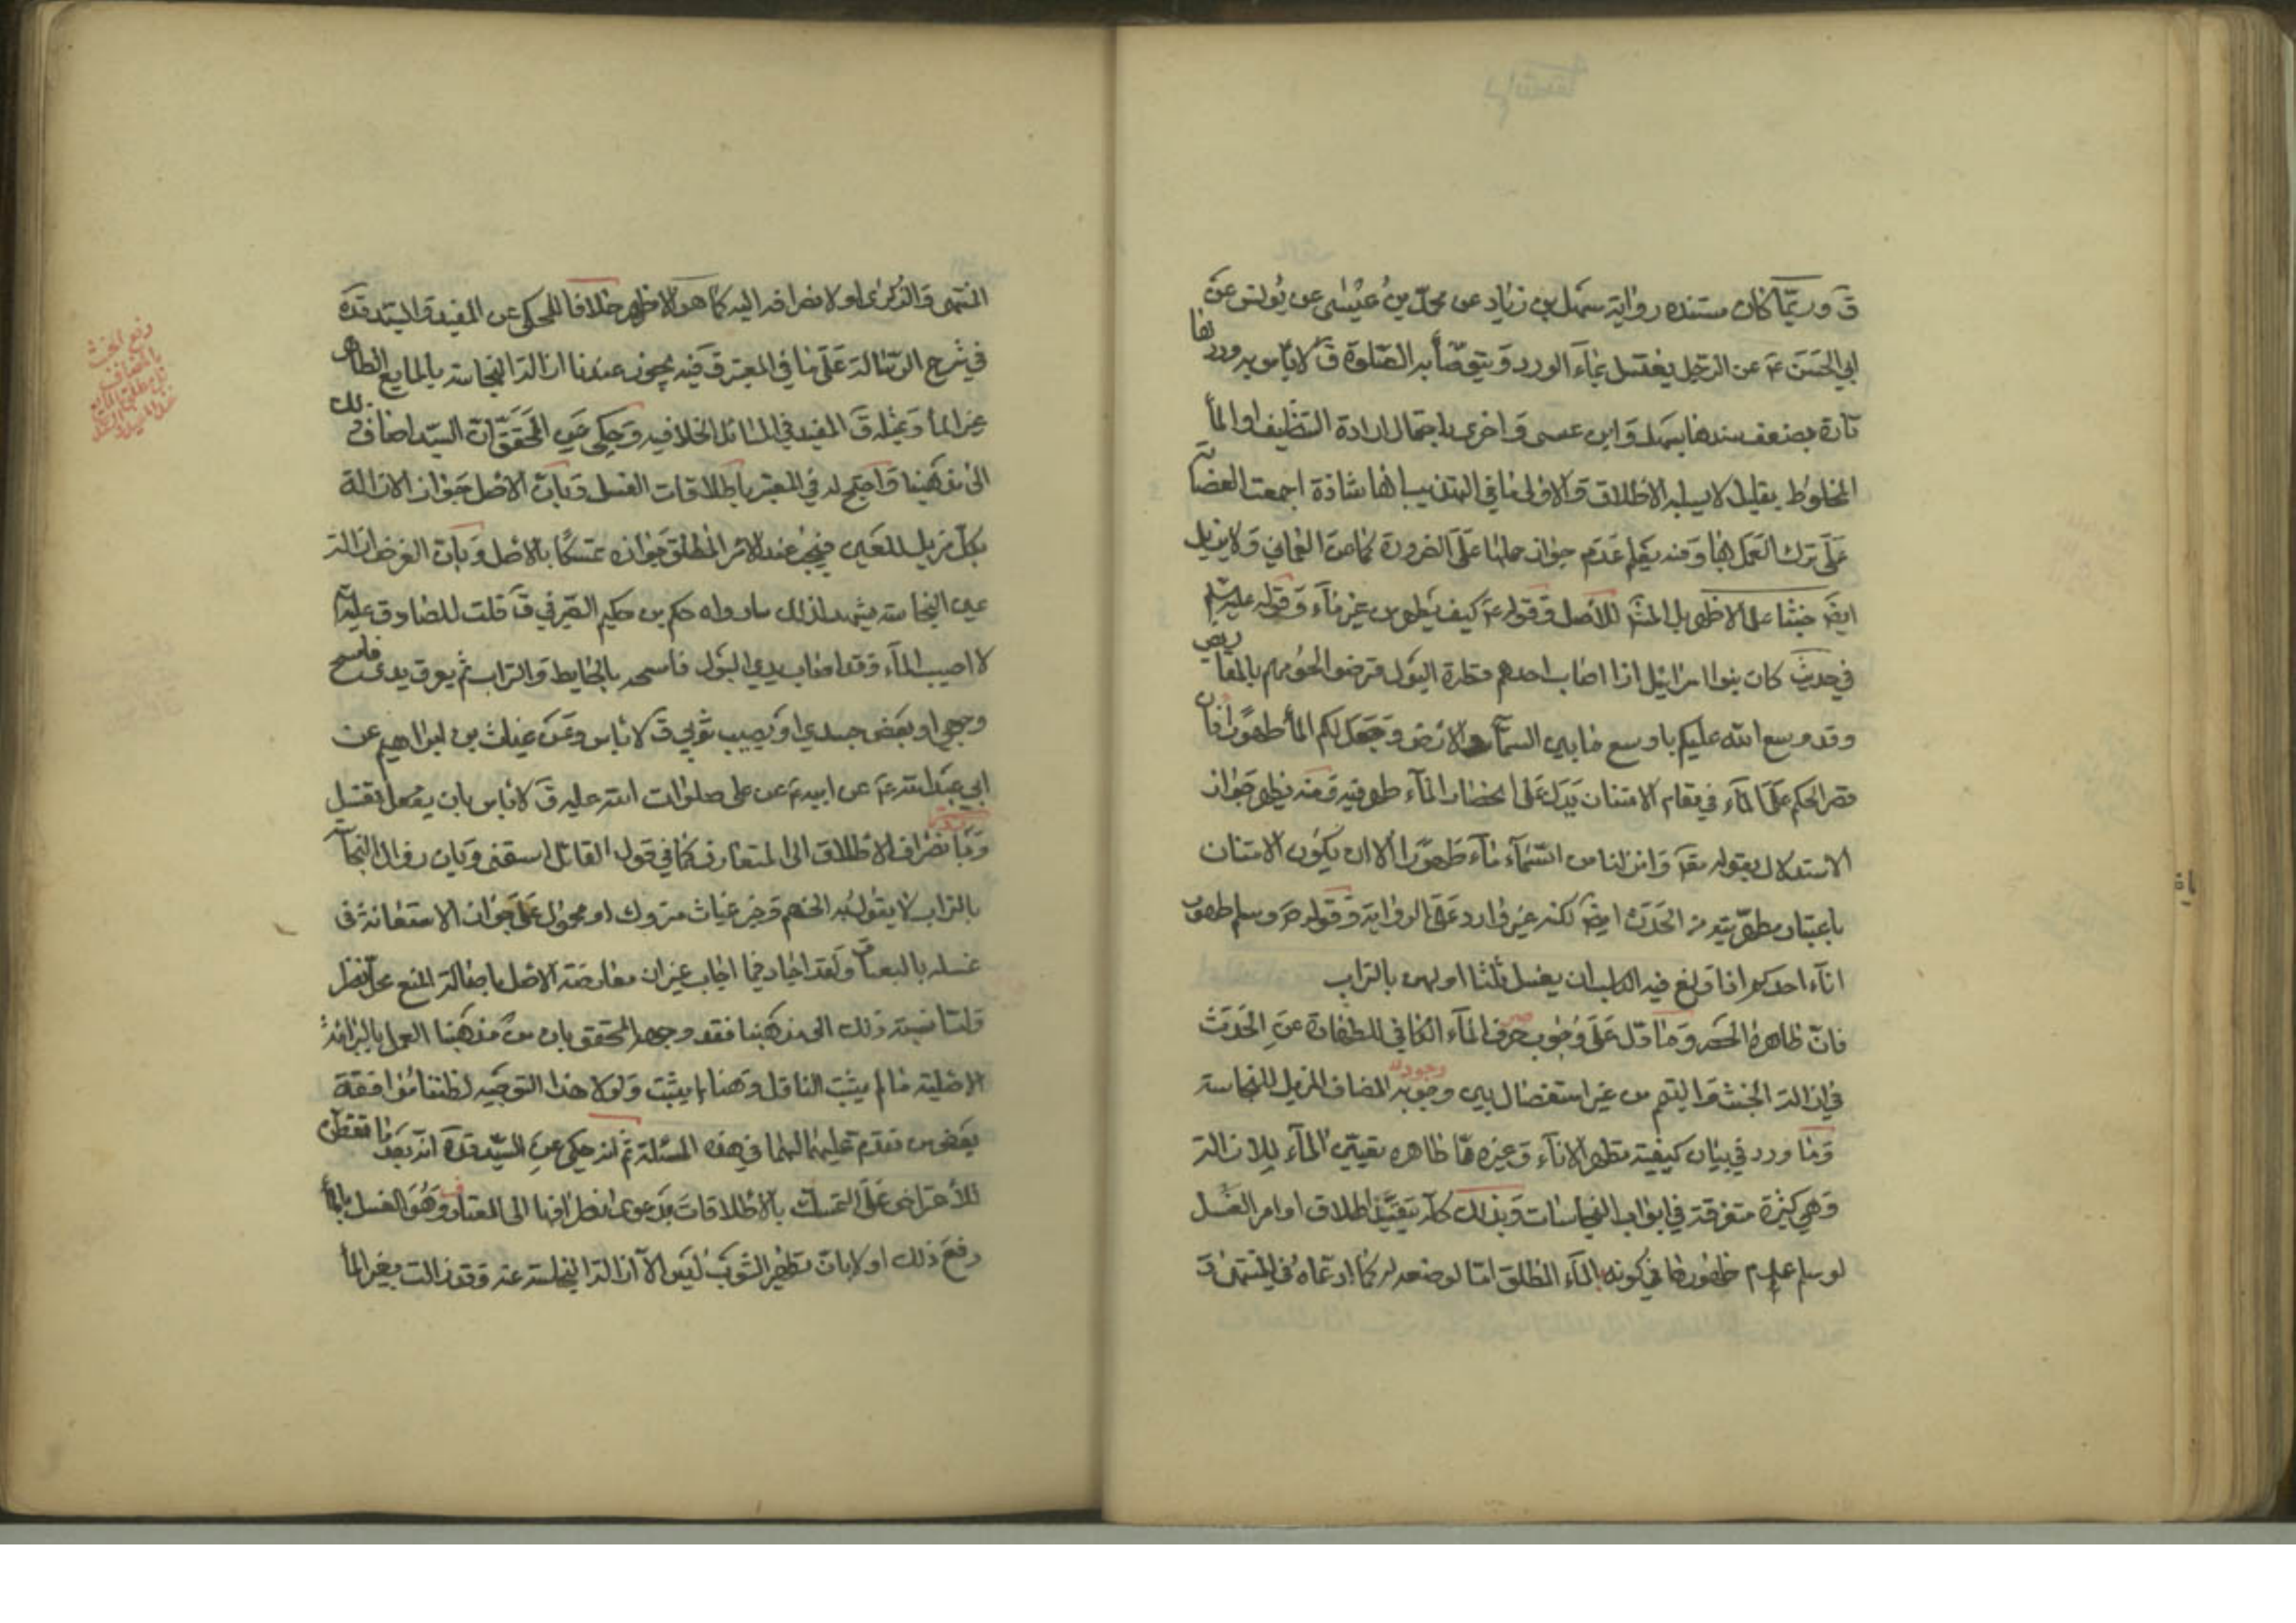 ق وربّما كان مستنده رواية سهل بن زياد عن محمّد بن عيسى عن يونس عن
ابي الحسن ع عن الرّجل يغتسل بماء الورد ويتوضّأ به الصّلوة ق لا باس به وردّها
تارة بضعف سندها بسهل وابن عيسى واخرى باحتمال ارادة التنظيف او الماء
المخلوط بقليل لا يسلبه الاطلاق والاولى ما في التهذيب بانها شاذة اجمعت العصابة
على ترك العمل بها ومنه يعلم عدم جواز حملها على الضرورة كما عن العماني ولا يزيل
ايضا خبثا على الاظهر بل المش للاصل وقوله ع كيف يطهر من غير ماء وقوله عليه السلم
في حديث كان بنوا اسرائيل اذا اصاب احدهم قطرة البول قرضوا لحومهم بالمقاريض
وقد وسع الله عليكم باوسع ما بين السماء والارض وجعل لكم الماء طهورا فان
قصر الحكم على الماء في مقام الامتنان يدل على انحصار الماء طهوريته ومنه يظهر جواز
الاستدلال بقوله تعه وانزلنا من السّماء ماء طهورا الا ان يكون الامتنان
باعتبار مطهّريته من الحدث ايضا لكنه غير وارد على الرواية وقوله ص وسلم طهور
اناء احدكم اذا ولغ فيه الكلب ان يغسل ثلثا اولهن بالتراب
فانّ ظاهره الحصر وما دل على وجوب صرف الماء الكافي للطهارة عن الحدث
في ازالة الخبث والتيمم من غير استفصال بين وجود المضاف المزيل للنجاسة
وما ورد في بيان كيفية تطهير الاناء وغيره ممّا ظاهره تعيين الماء للازالة
وهي كثيرة متفرقة في ابواب النجاسات وبذلك كله يتقيّد اطلاق اوامر الغسل
لو سلم عدم ظهورها في كونه بالماء المطلق امّا لوضعه له كما ادعاه في المنتهى ق
المنتهى والذكرى او لانصرافه اليه كما هو الاظهر خلافا للمحكي عن المفيد والسيد قده
في شرح الرسالة على ما في المعتبر ق فيه يجوز عندنا ازالة النجاسة بالمايع الطاهر
غير الماء وبمثله ق المفيد في المسائل الخلافيه وحكي عن المحقّق انّ السيّد اضاف ذلك
الى مذهبنا واحتج له في المعتبر باطلاقات الغسل وبانّ الاصل جواز الازالة
بكل مزيل للعين فيجب عند الامر المطلق جوازه تمسكا بالاصل وبان الغرض ازالة
عين النجاسة يشهد لذلك ما رواه حكم بن حكيم الصيرفي ق قلت للصادق عليه السلم
لا اصيب الماء وقد اصاب يدي البول فامسحه بالحايط والتراب ثم يعرق يدى فامسح
وجهي او بعض جسدي او يصيب ثوبي ق لا باس وعن غياث بن ابراهيم عن
ابي عبد الله ع عن ابيه ع عن على صلوات الله عليه ق لا باس بان يغسل
وبانصراف الاطلاق الى المتعارف كما في قول القائل اسقنى وبان زوال النجاسة
بالتراب لا يقول به الخصم وخبر غياث متروك او محمول على جواز الاستعانة في
غسله بالبصاق ولقد اجاد فيما اجاب غير ان معارضة الاصل باصالة المنع محل نظر
وامّا نسبة ذلك الى مذهبنا فقد وجهه المحقق بان من مذهبنا العمل بالبرائة
الاصلية ما لم يثبت الناقل وهنا لم يثبت ولولا هذا التوجيه لظننا موافقة
بعض من تقدم عليهما لهما في هذه المسئلة ثم انه حكي عن السيّد قده انه بعد ما تفطن
للاعتراض على التمسك بالاطلاقات بدعوى انصرافها الى المعتاد وهو الغسل بالماء
دفع ذلك اولا بان تطهير الثوب ليس الا ازالة النجاسة عنه وقد زالت بغير الماء
رفع الخبث
بالمضاف